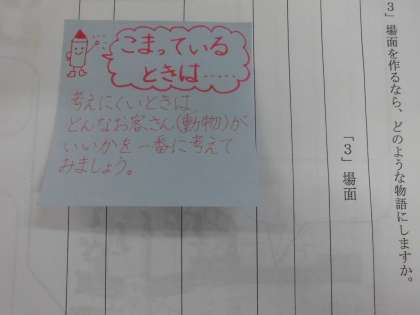 こまっている
ときは……
考えにくいときは、
どんなお客さん(動物)が
いいかを一番に考えて
みましょう。
3」場面を作るなら、どのような物語にしますか。
「3」場面